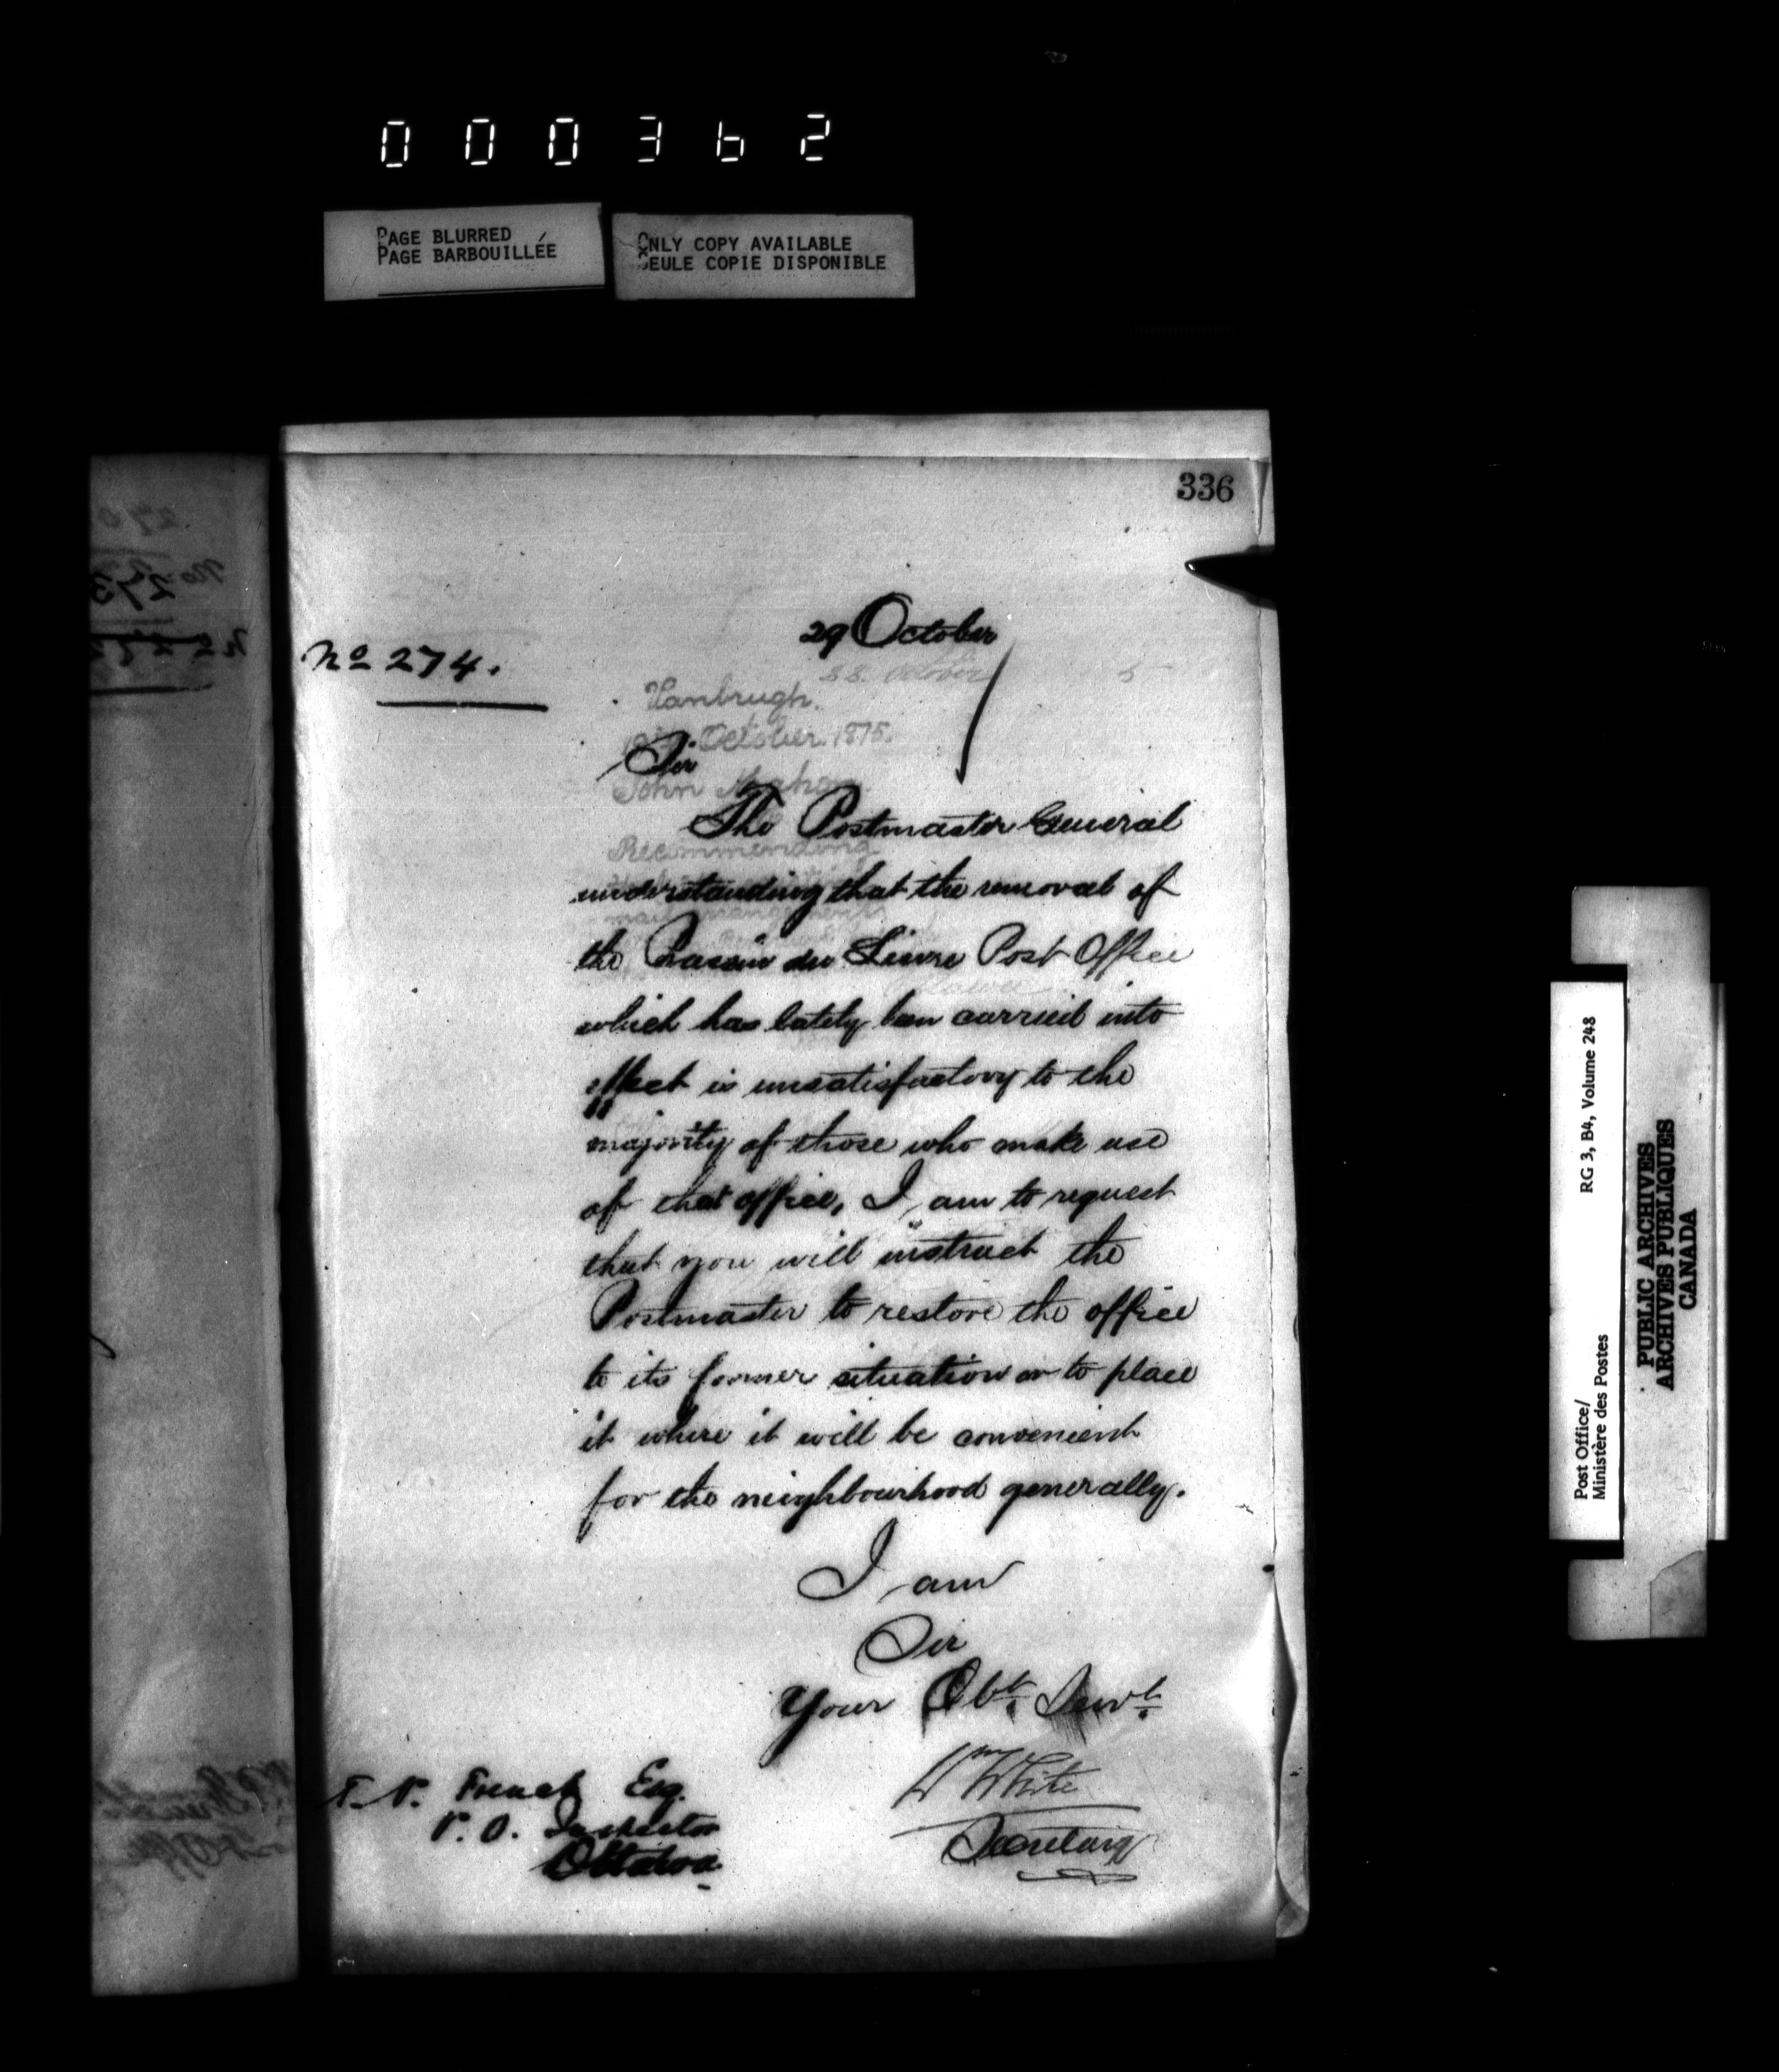 000362
PAGE BLURRED
PAGE BARBOUILLÉE
ONLY COPY AVAILABLE
SEULE COPIE DISPONIBLE
336
29 October
No 274.
28 October 5
Vanbrugh.
October. 1875.
Sir
John
The Postmaster General
Recommending
understanding that the removal of
mail arrangements
the Bassin du Lievre Post Office
which has lately been carried into
effect is unsatisfactory to the
majority of those who make use
of that office, I am to request
that you will instruct the
Postmaster to restore the office
to its former situation or to place
it where it will be convenient
for the neighbourhood generally.
I am
Sir
Your Obt. Servt.
Wm White
Secretary
T. P. French Esq.
P. O. Inspector
Ottawa.
Post Office/ RG 3, B4, Volume 248
Ministère des Postes
PUBLIC ARCHIVES
ARCHIVES PUBLIQUES
CANADA